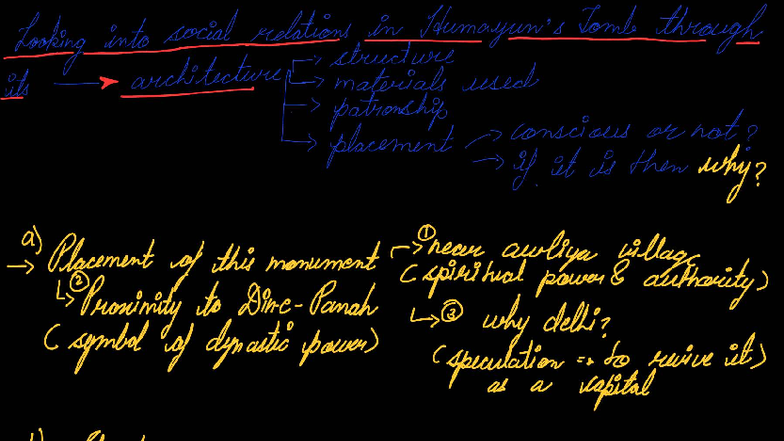 Looking into social relations in Humayun's Tomb through
its → architecture → structure
→ materials used
→ patronship
→ placement → conscious or not?
→ if it is then why?
a)
→ Placement of this monument
② Proximity to Din-e-Panah
(symbol of dynastic power)
→ ① near auliya village
(spiritual power & authority)
→ ③ why delhi?
(speculation => to revive it)
as a capital